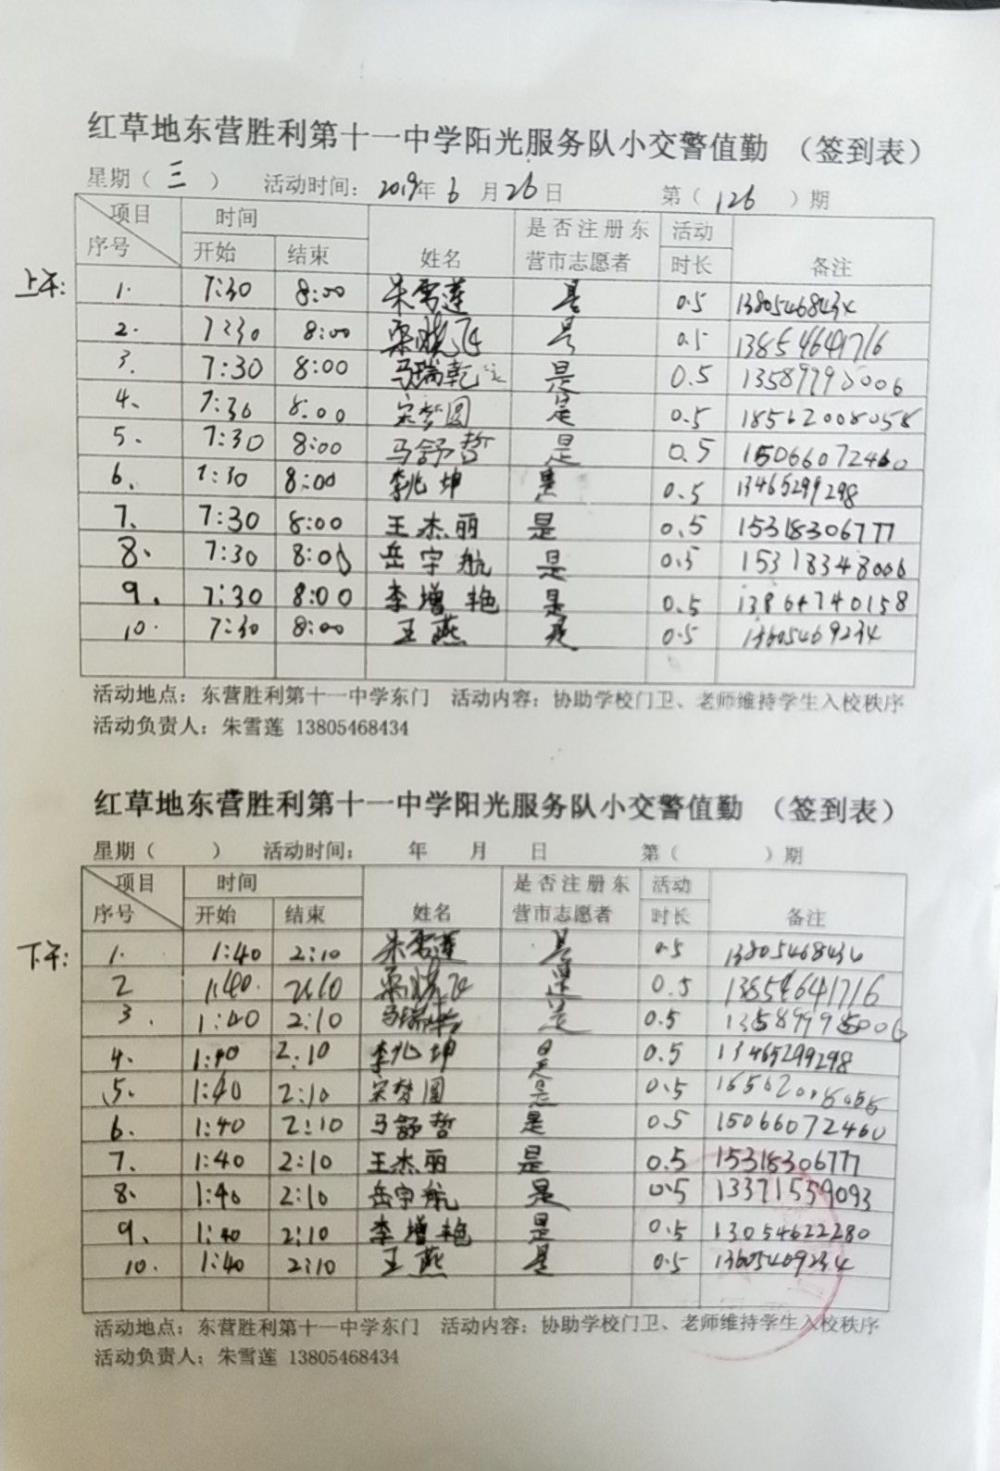 红草地东营胜利第十一中学阳光服务队小交警值勤 （签到表）
星期（三） 活动时间：2019年6月26日 第（126）期
项目 时间 是否注册东 活动
序号 开始 结束 姓名 营市志愿者 时长 备注
上午：
1. 7:30 8:00 朱雪莲 是 0.5 13805468434
2. 7:30 8:00 是 0.5 13854641716
3. 7:30 8:00 马瑞乾 是 0.5
4. 7:30 8:00 宋梦圆 是 0.5 18562008058
5. 7:30 8:00 马舒哲 是 0.5 15066072460
6. 7:30 8:00 李兆坤 是 0.5 13465299298
7. 7:30 8:00 王杰丽 是 0.5 15318306777
8. 7:30 8:00 岳宇航 是 0.5 15318348006
9. 7:30 8:00 李增艳 是 0.5 13864740158
10. 7:30 8:00 王燕 是 0.5
活动地点：东营胜利第十一中学东门 活动内容：协助学校门卫、老师维持学生入校秩序
活动负责人：朱雪莲 13805468434
红草地东营胜利第十一中学阳光服务队小交警值勤 （签到表）
星期（ ） 活动时间： 年 月 日 第（ ）期
项目 时间 是否注册东 活动
序号 开始 结束 姓名 营市志愿者 时长 备注
下午：
1. 1:40 2:10 朱雪莲 是 0.5 13805468434
2 1:40. 2:10 是 0.5 13854641716
3. 1:40 2:10 马瑞乾 是 0.5
4. 1:40 2:10 李兆坤 是 0.5 13465299298
5. 1:40 2:10 宋梦圆 是 0.5
6. 1:40 2:10 马舒哲 是 0.5 15066072460
7. 1:40 2:10 王杰丽 是 0.5 15318306777
8. 1:40 2:10 岳宇航 是 0.5 13371559093
9. 1:40 2:10 李增艳 是 0.5 13054622280
10. 1:40 2:10 王燕 是 0.5
活动地点：东营胜利第十一中学东门 活动内容：协助学校门卫、老师维持学生入校秩序
活动负责人：朱雪莲 13805468434